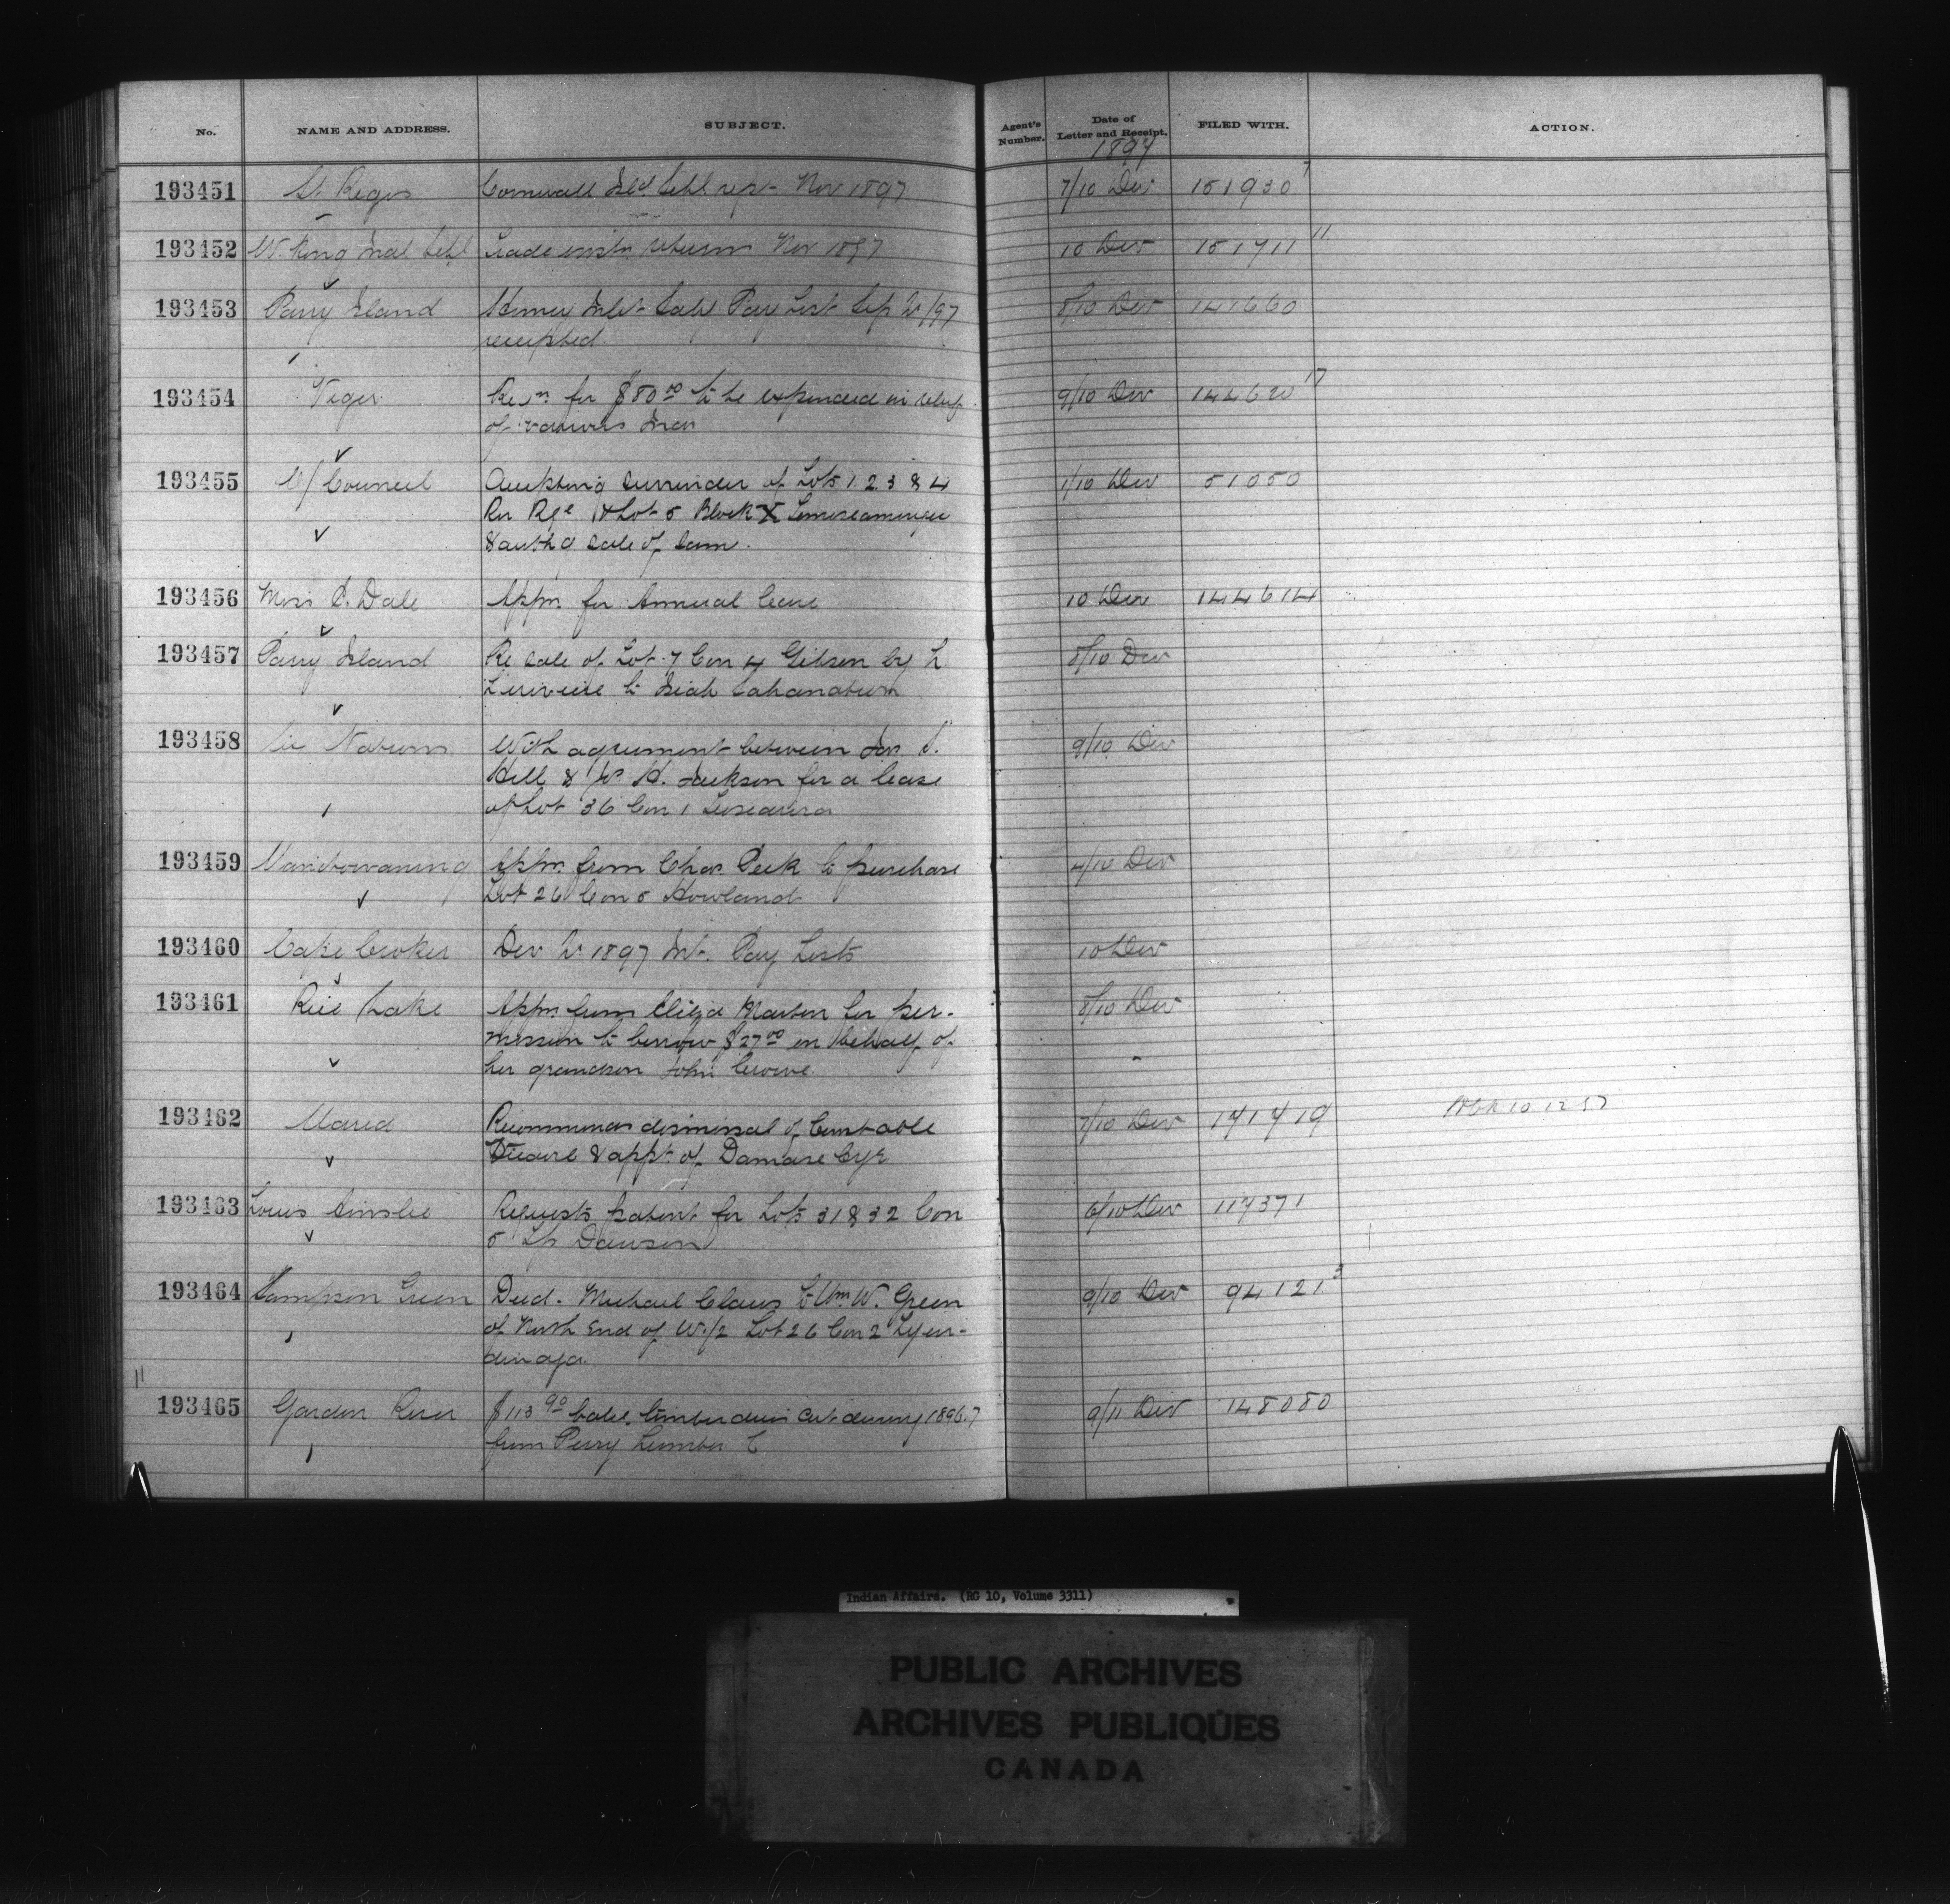 No. NAME AND ADDRESS. SUBJECT. Agent's Number. Date of Letter and Receipt. FILED WITH. ACTION.
1897
193451 St. Regis Cornwall Isld Schl rept Nov 1897 7/10 Dec 151930 7
193452 W. Kong Indl Schl Trade instn returns Nov 1897 10 Dec 151711 11
193453 Parry Island Henvey Inlet Schl Pay List Sep Qr /97 8/10 Dec 141660
receipted.
193454 Viger Reqn for $80 00 to be expended in relief 9/10 Dec 144620 17
of various Inds
193455 O/Council Accepting surrender of Lots 1 2 3 & 4 1/10 Dec 51050
Riv Rge 1 & Lot 5 Block X Temiscamingue
& authg sale of same.
193456 Miss C. Dale Appn for Annual leave 10 Dec 144614
193457 Parry Island Re sale of Lot 7 Con 4 Gibson by L. 8/10 Dec
to
193458 Six Nations With agreement between Jas. S. 9/10 Dec
Hill & H. Jackson for a lease
of Lot 36 Con 1 Tuscarora
193459 Manitowaning Appn from Chas Peck to purchase 4/10 Dec
Lot 26 Con 5 Howland
193460 Cape Croker Dec Qr 1897 Int. Pay Lists 10 Dec
193461 Rice Lake Appn from Eliza Marsden for per- 8/10 Dec
mission to borrow $27 00 on behalf of
her grandson John Crowe.
193462 Maria Recommends dismissal of Constable 7/10 Dec 141419
& appt of Damase Cyr
193463 Louis Ainslie Requests patent for Lots 31 & 32 Con 6/10 Dec 117371
5 Tp Dawson
193464 Sampson Green Deed - Michael Claus to Wm W. Green 9/10 Dec 94121 3
of North End of W 1/2 Lot 26 Con 2 Tyen-
dinaga
193465 Garden River $113 90 timber dues cut during 1896.7 9/11 Dec 148080
from Perry Lumber C
Indian Affairs. (RG 10, Volume 3311)
PUBLIC ARCHIVES
ARCHIVES PUBLIQUES
CANADA